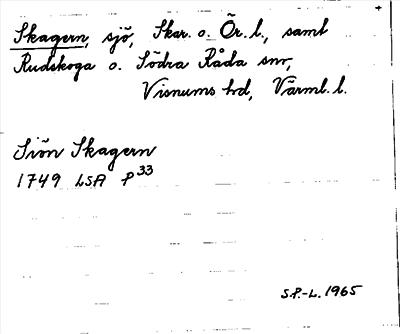 Skagern, sjö, Skar. o. Ör. l., samt
Rudskoga o. Södra Råda snr,
Visnums hd, Värml. l.
Siön Skagern
1749 LSA P 33
S.P.-L. 1965